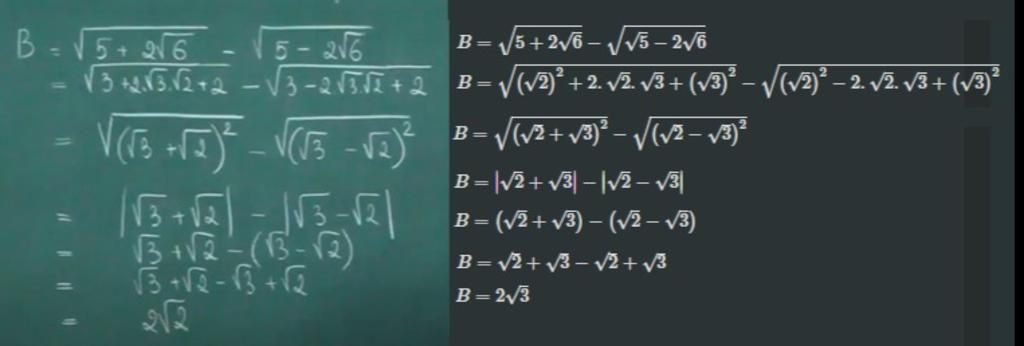 B = √(5 + 2√6) - √(5 - 2√6)
= √(3 + 2.√3.√2 + 2) - √(3 - 2√3.√2 + 2)
= √((√3 + √2)²) - √((√3 - √2)²)
= |√3 + √2| - |√3 - √2|
= √3 + √2 - (√3 - √2)
= √3 + √2 - √3 + √2
= 2√2
B = √(5 + 2√6) − √(√5 − 2√6)
B = √((√2)² + 2. √2. √3 + (√3)²) − √((√2)² − 2. √2. √3 + (√3)²)
B = √((√2 + √3)²) − √((√2 − √3)²)
B = |√2 + √3| − |√2 − √3|
B = (√2 + √3) − (√2 − √3)
B = √2 + √3 − √2 + √3
B = 2√3